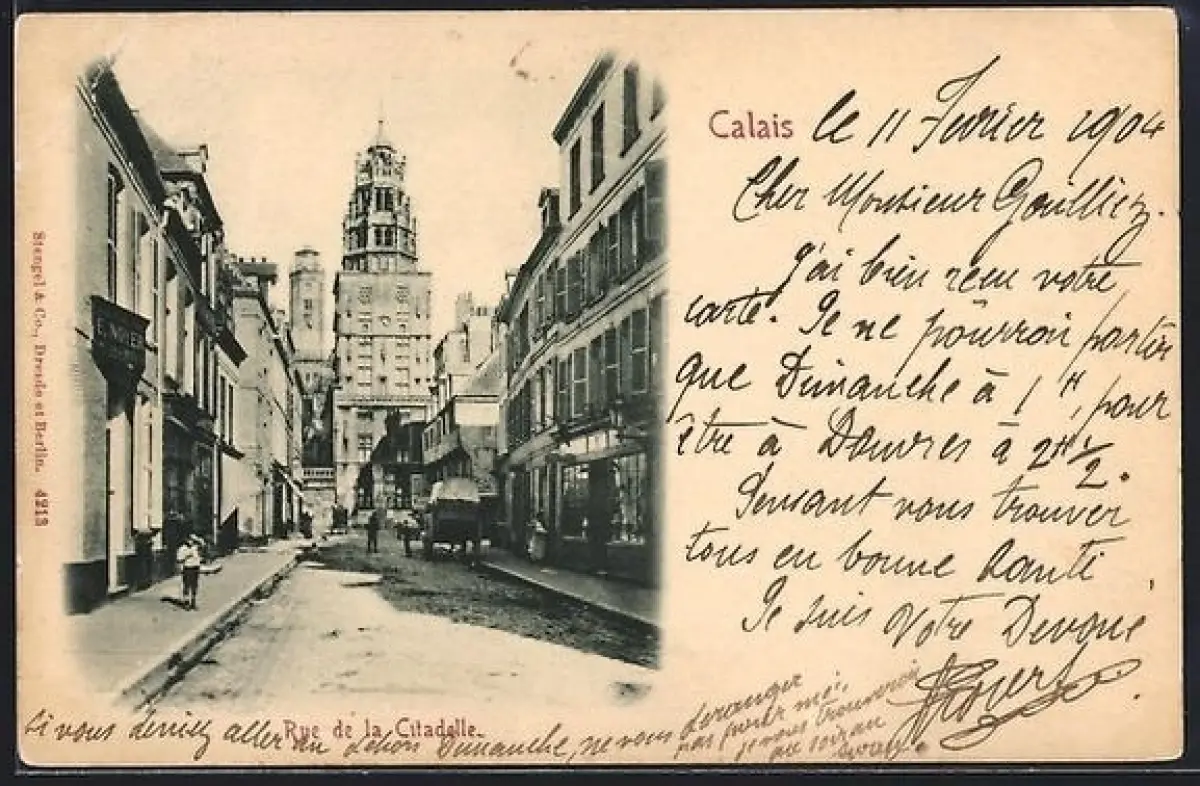 Calais le 11 Fevrier 1904
Cher Monsieur
J'ai bien reçu votre
carte. Je ne pourrai partir
que Dimanche à 1 H, pour
être à Douvres à 2 H 1/2.
vous trouver
tous en bonne Santé
Je suis Votre Devoué
Si vous deviez aller au dehors Dimanche, ne vous deranger
pas pour moi,
je vous trouverai
au soir
Rue de la Citadelle.
Stengel & Co., Dresde et Berlin. 4213